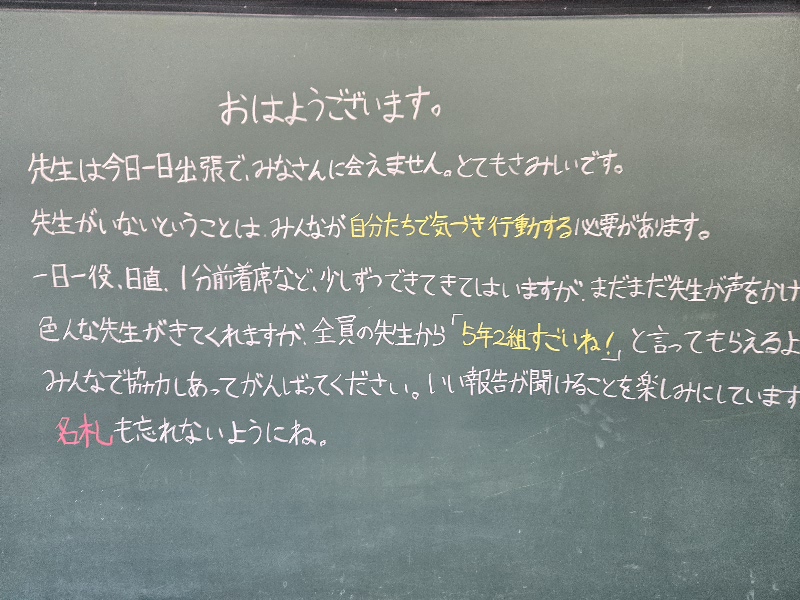 おはようございます。
先生は今日一日出張で、みなさんに会えません。とてもさみしいです。
先生がいないということは、みんなが自分たちで気づき行動する必要があります。
一日一役、日直、1分前着席など、少しずつできてきてはいますが、まだまだ先生が声をかけ
色んな先生がきてくれますが、全員の先生から「5年2組すごいね!」と言ってもらえるよ
みんなで協力しあってがんばってください。いい報告が聞けることを楽しみにしています
名札も忘れないようにね。